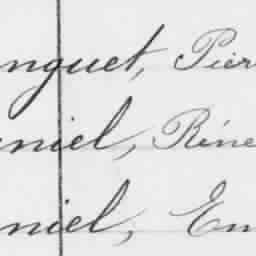 nguet, Pier
niel, Réne
niel, Em